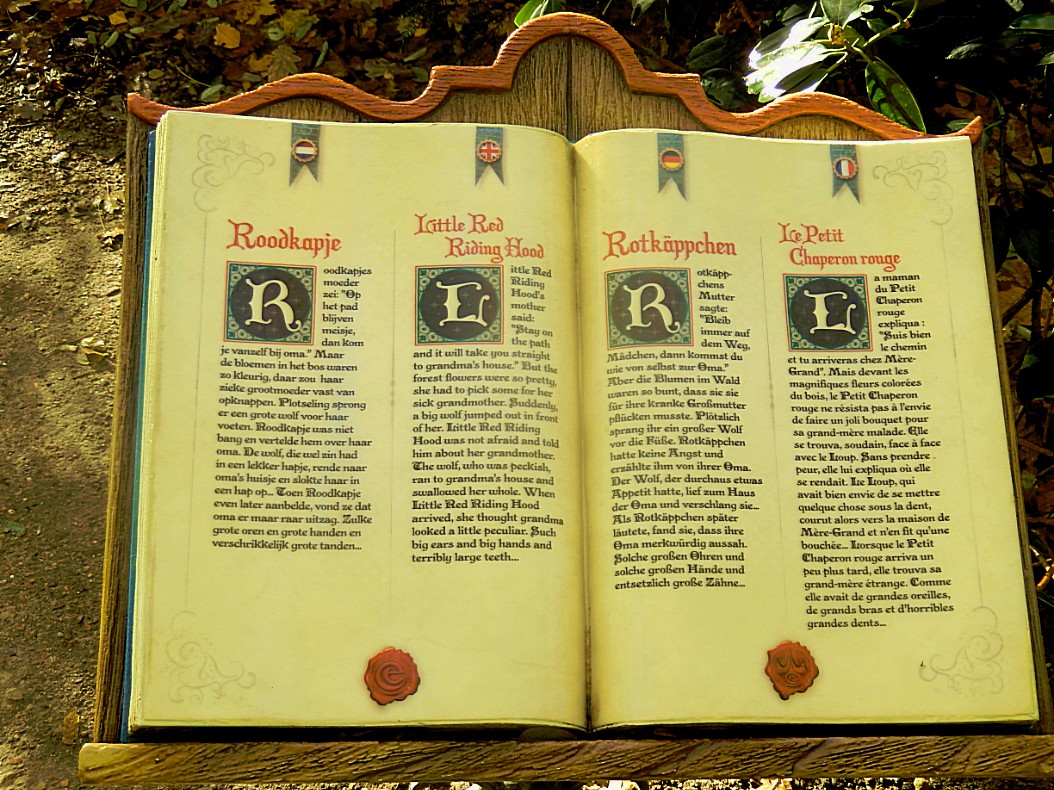 Roodkapje
Roodkapjes
moeder
zei: "Op
het pad
blijven
meisje,
dan kom
je vanzelf bij oma." Maar
de bloemen in het bos waren
zo kleurig, daar zou haar
zieke grootmoeder vast van
opknappen. Plotseling sprong
er een grote wolf voor haar
voeten. Roodkapje was niet
bang en vertelde hem over haar
oma. De wolf, die wel zin had
in een lekker hapje, rende naar
oma's huisje en slokte haar in
een hap op... Toen Roodkapje
even later aanbelde, vond ze dat
oma er maar raar uitzag. Zulke
grote oren en grote handen en
verschrikkelijk grote tanden...
Little Red
Riding Hood
Little Red
Riding
Hood's
mother
said:
"Stay on
the path
and it will take you straight
to grandma's house." But the
forest flowers were so pretty,
she had to pick some for her
sick grandmother. Suddenly,
a big wolf jumped out in front
of her. Little Red Riding
Hood was not afraid and told
him about her grandmother.
The wolf, who was peckish,
ran to grandma's house and
swallowed her whole. When
Little Red Riding Hood
arrived, she thought grandma
looked a little peculiar. Such
big ears and big hands and
terribly large teeth...
Rotkäppchen
Rotkäpp-
chens
Mutter
sagte:
"Bleib
immer auf
dem Weg,
Mädchen, dann kommst du
wie von selbst zur Oma."
Aber die Blumen im Wald
waren so bunt, dass sie sie
für ihre kranke Großmutter
pflücken musste. Plötzlich
sprang ihr ein großer Wolf
vor die Füße. Rotkäppchen
hatte keine Angst und
erzählte ihm von ihrer Oma.
Der Wolf, der durchaus etwas
Appetit hatte, lief zum Haus
der Oma und verschlang sie...
Als Rotkäppchen später
läutete, fand sie, dass ihre
Oma merkwürdig aussah.
Solche großen Ohren und
solche großen Hände und
entsetzlich große Zähne...
Le Petit
Chaperon rouge
La maman
du Petit
Chaperon
rouge
expliqua :
"Suis bien
le chemin
et tu arriveras chez Mère-
Grand". Mais devant les
magnifiques fleurs colorées
du bois, le Petit Chaperon
rouge ne résista pas à l'envie
de faire un joli bouquet pour
sa grand-mère malade. Elle
se trouva, soudain, face à face
avec le Loup. Sans prendre
peur, elle lui expliqua où elle
se rendait. Le Loup, qui
avait bien envie de se mettre
quelque chose sous la dent,
courut alors vers la maison de
Mère-Grand et n'en fit qu'une
bouchée... Lorsque le Petit
Chaperon rouge arriva un
peu plus tard, elle trouva sa
grand-mère étrange. Comme
elle avait de grandes oreilles,
de grands bras et d'horribles
grandes dents...